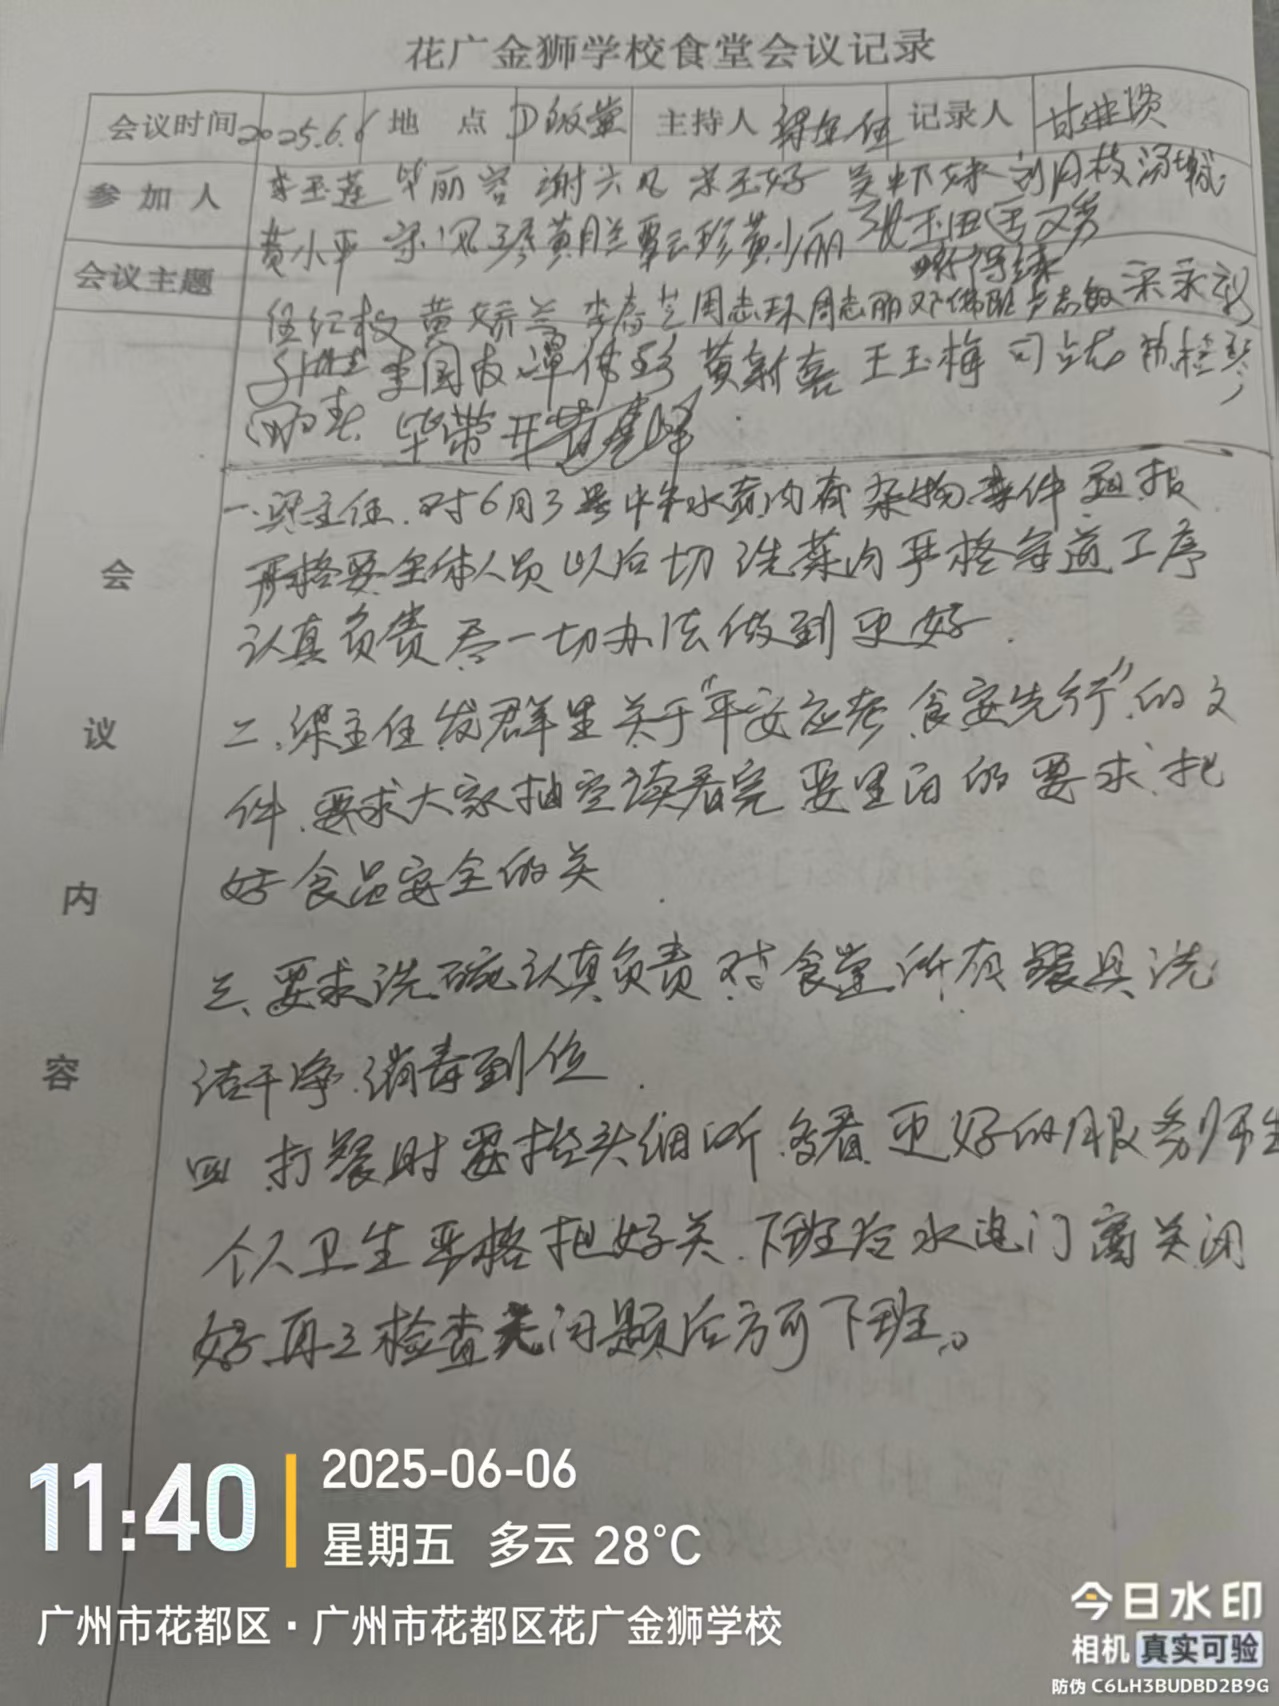 花广金狮学校食堂会议记录
会议时间 2025.6.6 地点 D饭堂 主持人 记录人
参加人 李玉莲 毕丽容 谢六凤 宋玉好 刘月枝
黄小平 黄月兰 覃云珍 黄小丽
会议主题
伍红枝 黄娇兰 李春兰 周志环 周志丽
李国友 黄新喜 王玉梅
毕带开
会议内容
一.梁主任.对6月3号中午水煮肉有杂物事件通报
严格要全体人员以后切洗菜肉严格每道工序
认真负责尽一切办法做到更好.
二.梁主任发群里关于"平安应考 食安先行"的文
件.要求大家抽空读看完要里面的要求.把
好食品安全的关
三、要求洗碗认真负责对食堂所有餐具洗
洁干净.消毒到位.
四.打餐时要抬头细听.多看.更好的服务师生
个人卫生严格把好关.下班冷水电门窗关闭
好.再三检查无问题后方可下班。
11:40
2025-06-06
星期五 多云 28°C
广州市花都区·广州市花都区花广金狮学校
今日水印
相机 真实可验
防伪 C6LH3BUDBD2B9G